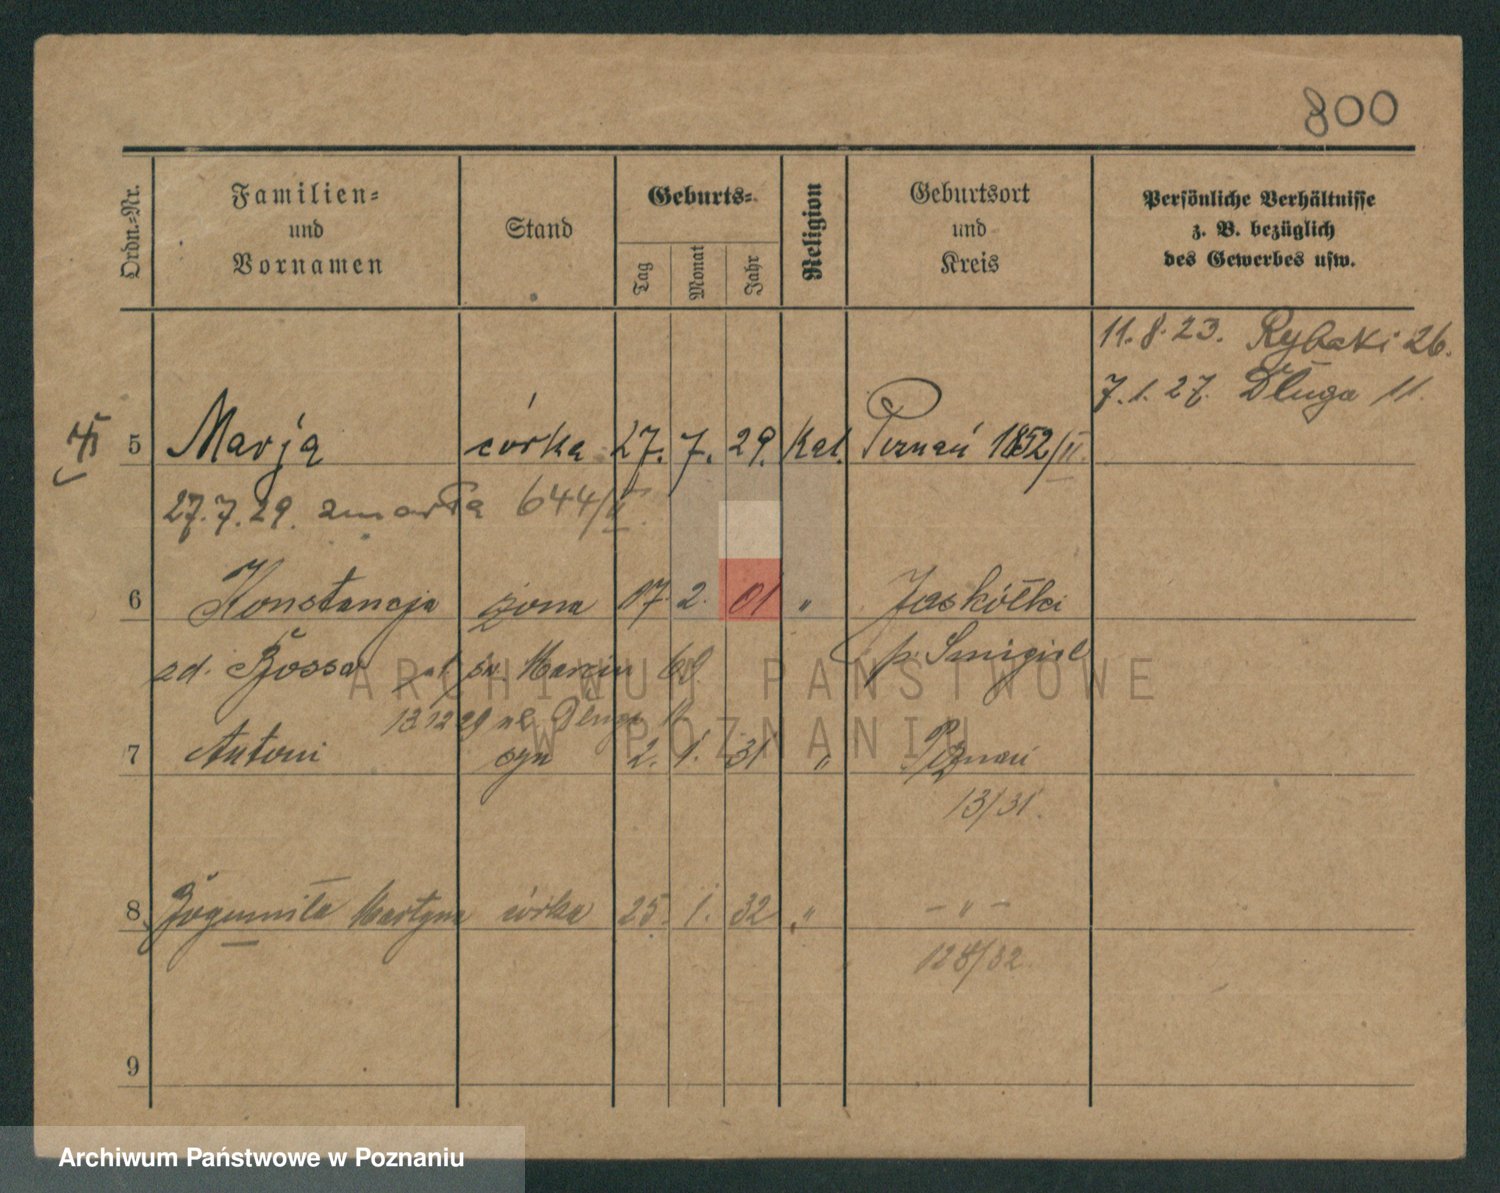 800
Ordn.-Nr.
Familien- und Vornamen
Stand
Geburts-
Tag Monat Jahr
Religion
Geburtsort und Kreis
Persönliche Verhältnisse z. B. bezüglich des Gewerbes usw.
11.8.23. Rybaki 26.
7.1.27. Długa 11.
5 Marja córka 27. 7. 29. Kat. Poznań 1852/II.
27.7.29. zmarła 644/II.
6 Konstancja żona 17. 2. 01 " Jaskółki
zd. Bossa św. Marcin 68. p. Śmigiel
13 12 29 ul. Długa 11
7 Antoni syn 2. 1. 31 " Poznań
13/31.
8 Bogumiła Martyna córka 25. 1. 32 " - " -
128/32.
9
ARCHIWUM PAŃSTWOWE
W POZNANIU
Archiwum Państwowe w Poznaniu